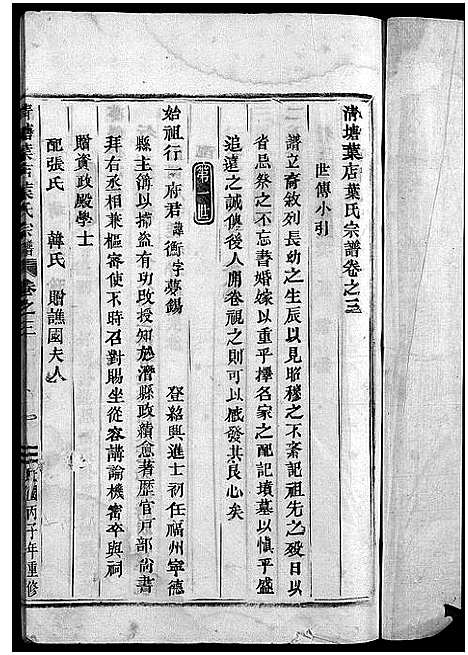 清塘葉店葉氏宗譜卷之三
世傳小引
譜立齊敘列長幼之生辰以見昭穆之不紊記祖先之歿日以
省忌祭之不忘書婚嫁以重乎擇名家之配記墳墓以愼乎盛
追遠之誠俾後人開卷視之則可以感發其良心矣
第一世
始祖行一府君諱衡字夢錫 登紹興進士初任福州寧德
縣主簿以捕盜有功改授知於潛縣政績愈著歷官戶部尚書
拜右丞相兼樞審使不時召對賜坐從容講論機密卒與祠
贈資政殿學士
配張氏 韓氏 贈譙國夫人
清塘葉店葉氏宗譜 卷之三 一 丙子年重修